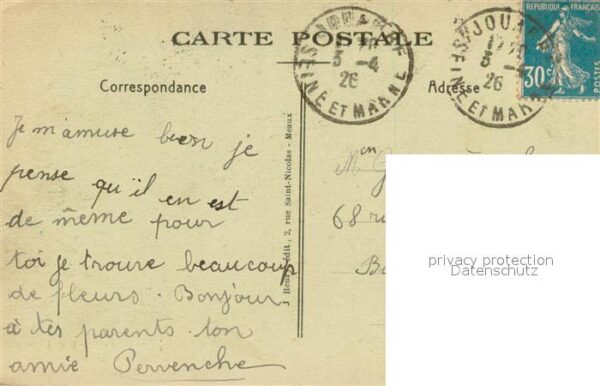 CARTE POSTALE
Correspondance
Adresse
JOUARRE
3 -4
26
SEINE ET MARNE
JOUARRE
3 -4
26
SEINE ET MARNE
REPUBLIQUE FRANÇAISE
30c
POSTES
Je m'amuse bien je
pense qu'il en est
de même pour
toi je trouve beaucoup
de fleurs. Bonjour
à tes parents ton
amie Pervenche
édit., 2, rue Saint-Nicolas - Meaux
68 ru
privacy protection
Datenschutz